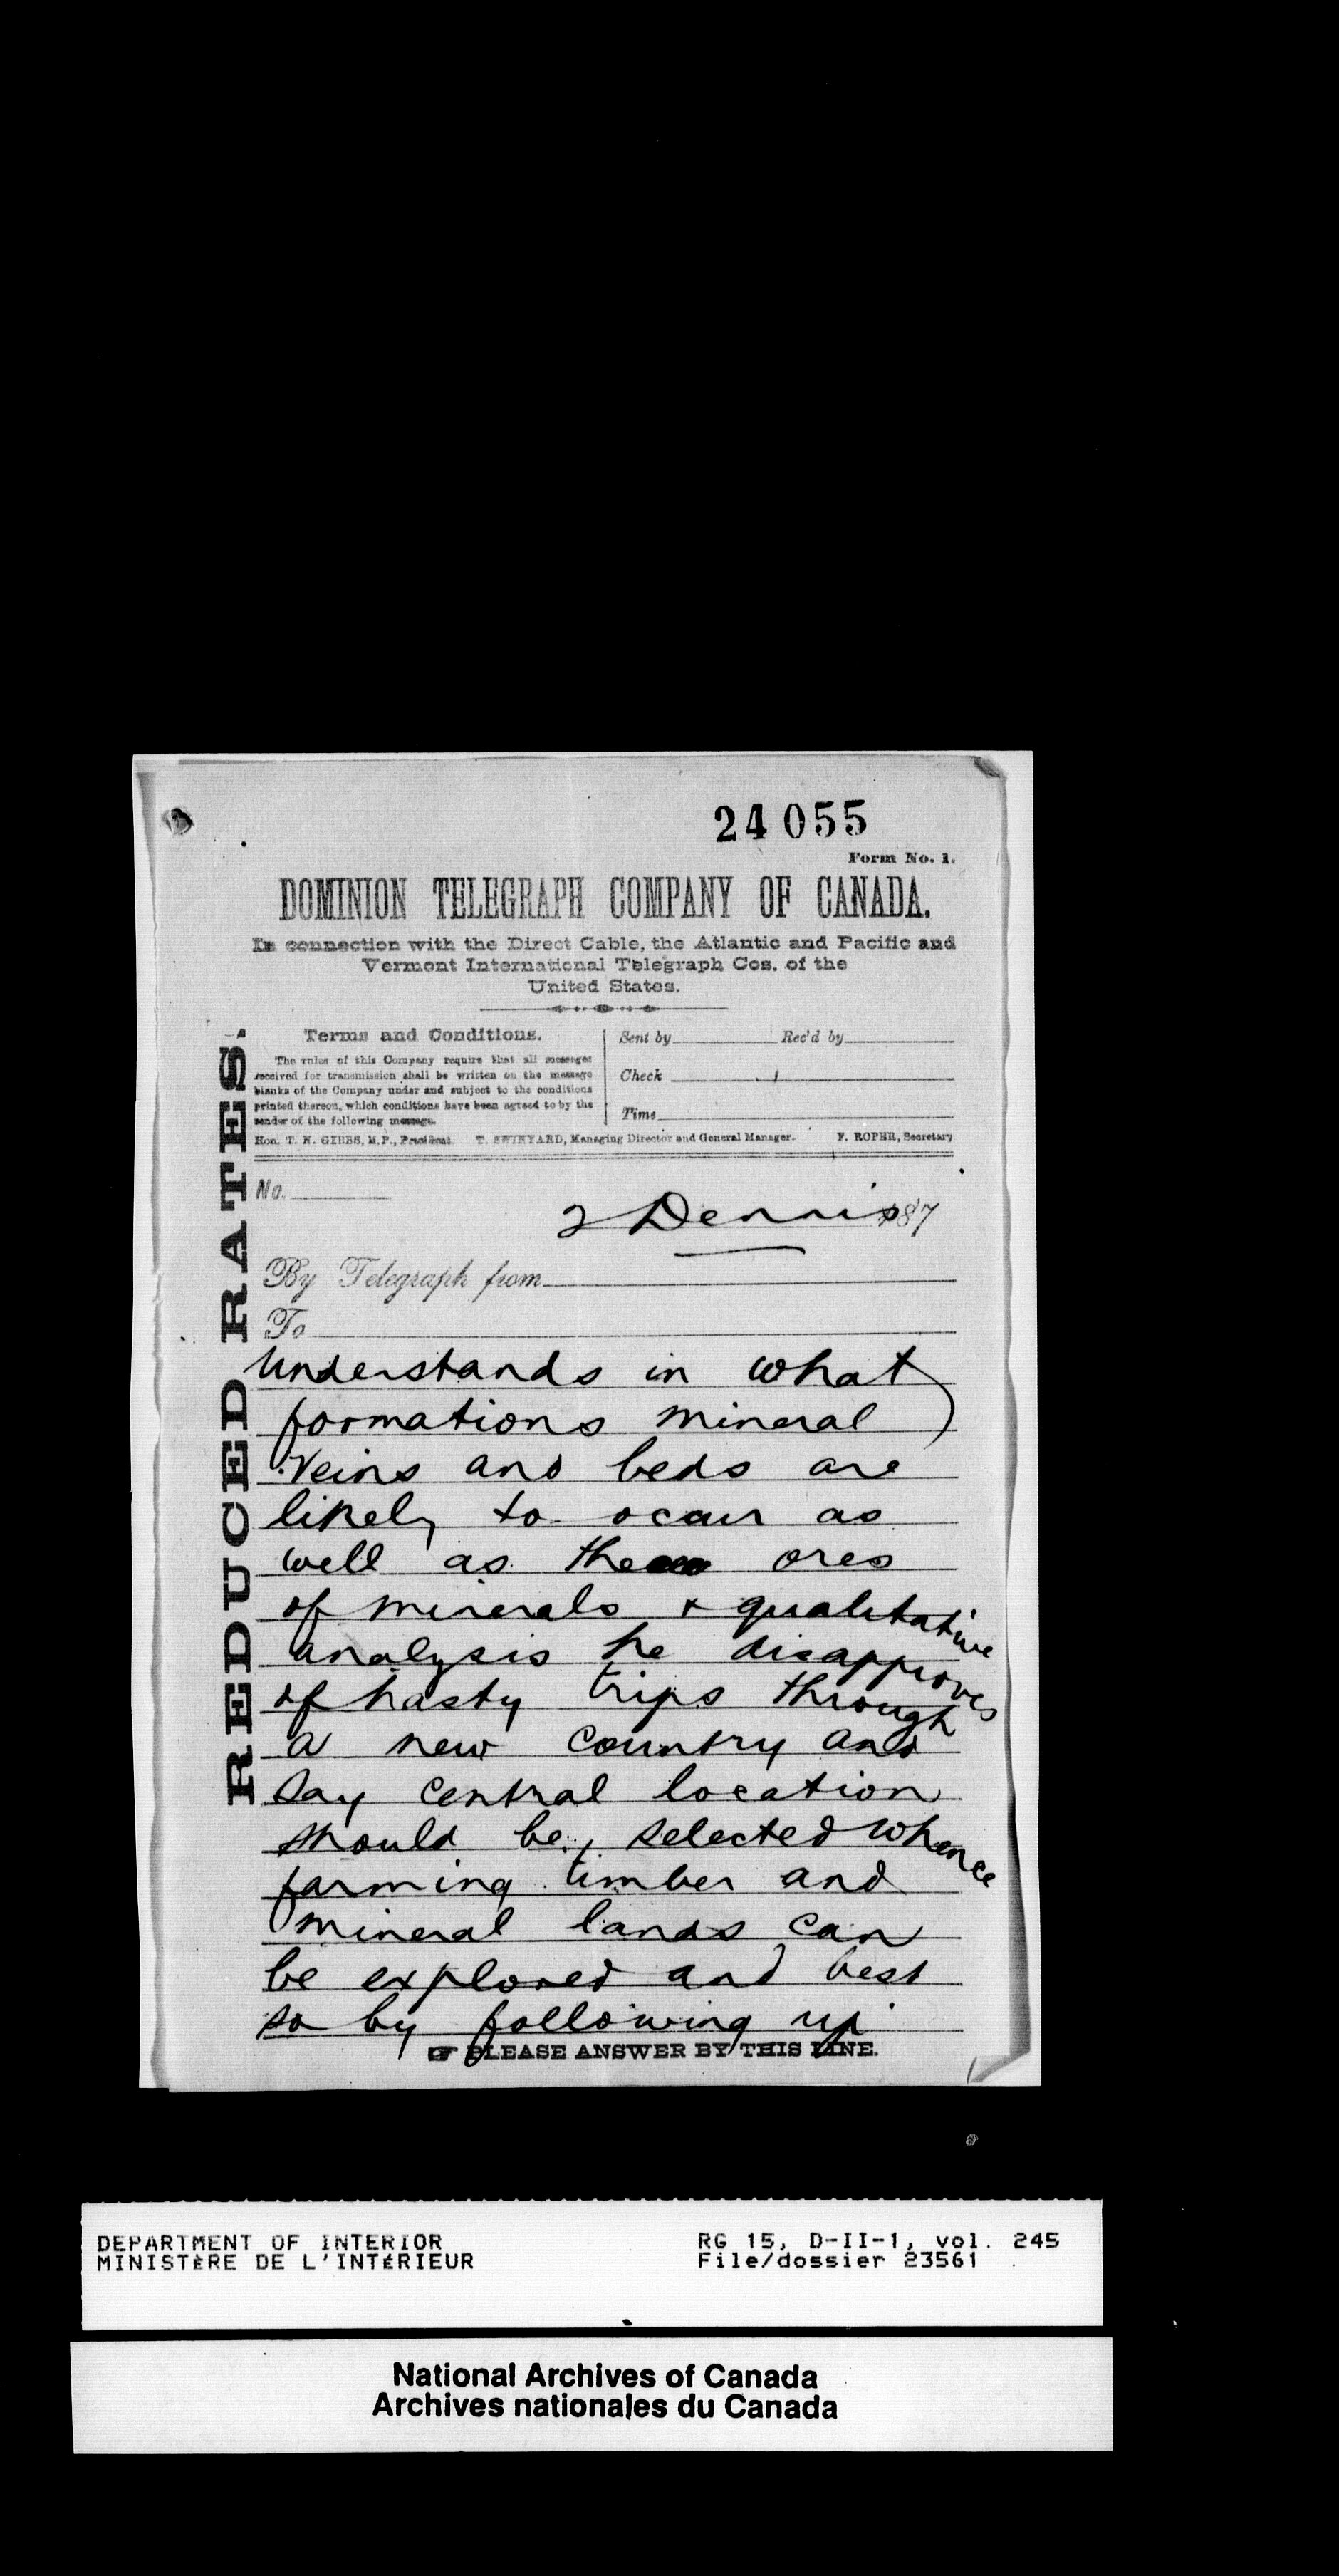 24055
Form No. 1.
DOMINION TELEGRAPH COMPANY OF CANADA.
In connection with the Direct Cable, the Atlantic and Pacific and
Vermont International Telegraph Cos. of the
United States.
REDUCED RATES.
Terms and Conditions.
The rules of this Company require that all messages
received for transmission shall be written on the message
blanks of the Company under and subject to the conditions
printed thereon, which conditions have been agreed to by the
sender of the following message.
Sent by Rec'd by
Check
Time
Hon. T. N. GIBBS, M.P., President. T. SWINYARD, Managing Director and General Manager. F. ROPER, Secretary
No.
2 Dennis 187
By Telegraph from
To
Understands in what
formations mineral
veins and beds are
likely to occur as
well as the ores
of minerals & qualitative
analysis he disapproves
of hasty trips through
a new country and
say central location
should be selected whence
farming timber and
mineral lands can
be explored and best
so by following up
PLEASE ANSWER BY THIS LINE.
DEPARTMENT OF INTERIOR
MINISTÈRE DE L'INTÉRIEUR
RG 15, D-II-1, vol. 245
File/dossier 23561
National Archives of Canada
Archives nationales du Canada